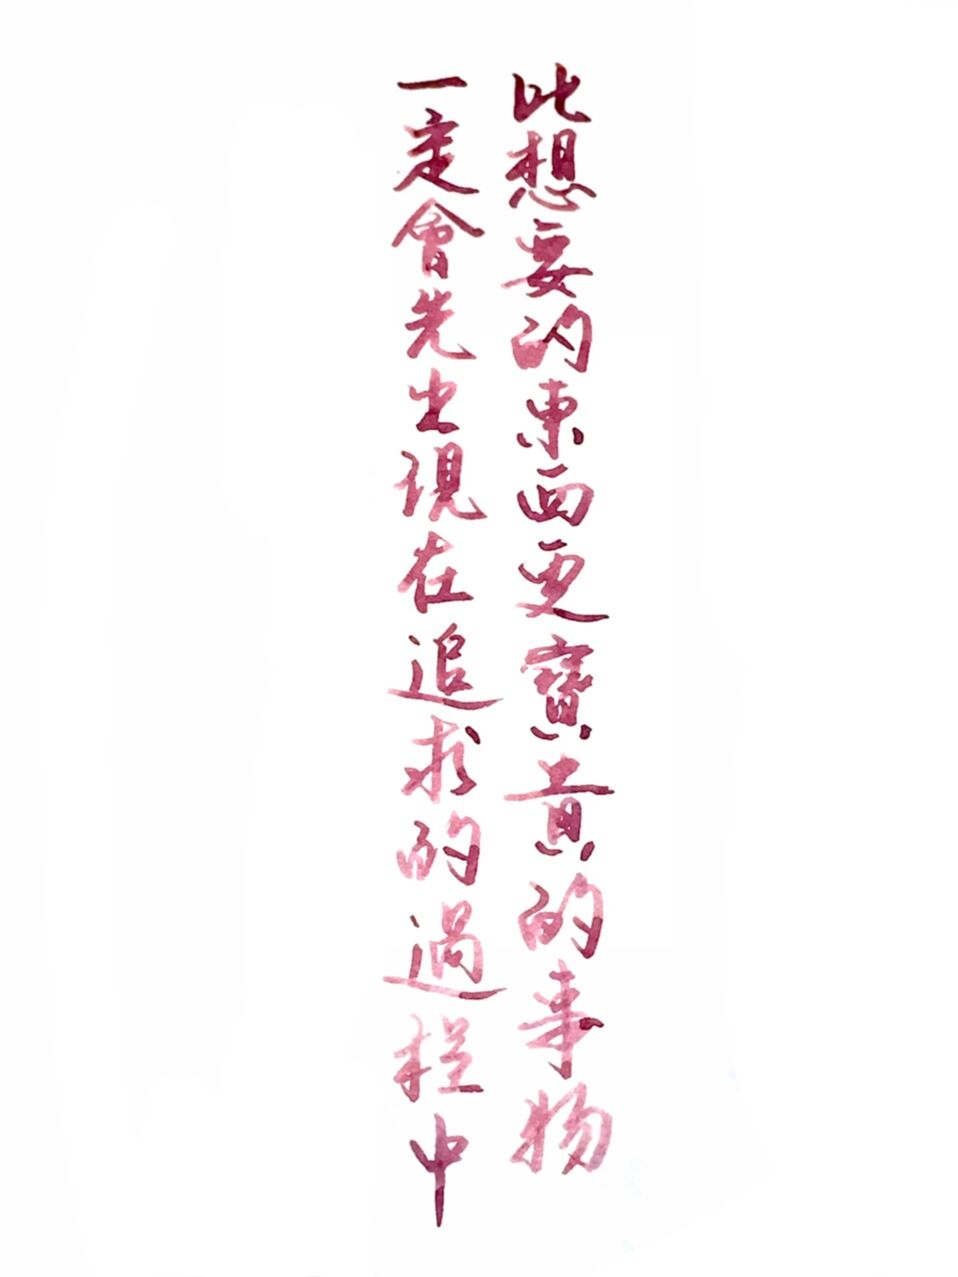 比想要的東西更寶貴的事物
一定會先出現在追求的過程中